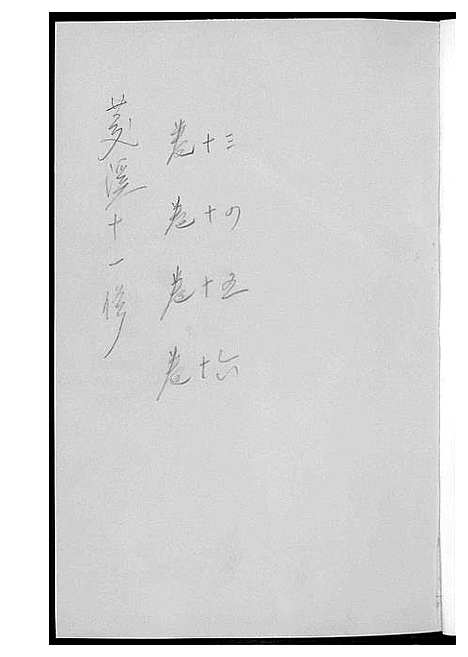 菱溪十一修
卷十三
卷十四
卷十五
卷十六